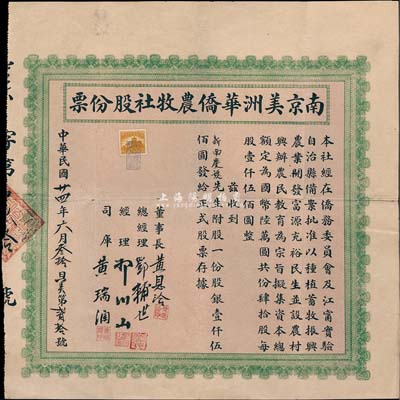 南京美洲華僑農牧社股份票
本社經在僑務委員會及江甯實驗
自治縣備案批准以種植畜牧振興
農業開發富源充裕民生並設農村
興辦農民教育為宗旨擬集資本總
額定為國幣陸萬圓共份肆拾股每
股壹仟伍佰圓整
茲收到
先生附股一份股銀壹仟伍
佰圓發給正式股票存據
董事長 黃
總經理 鄧輔
經理 鄺山
司庫 黃瑞
中華民國廿四年六月叁拾日 第貳拾號
上海